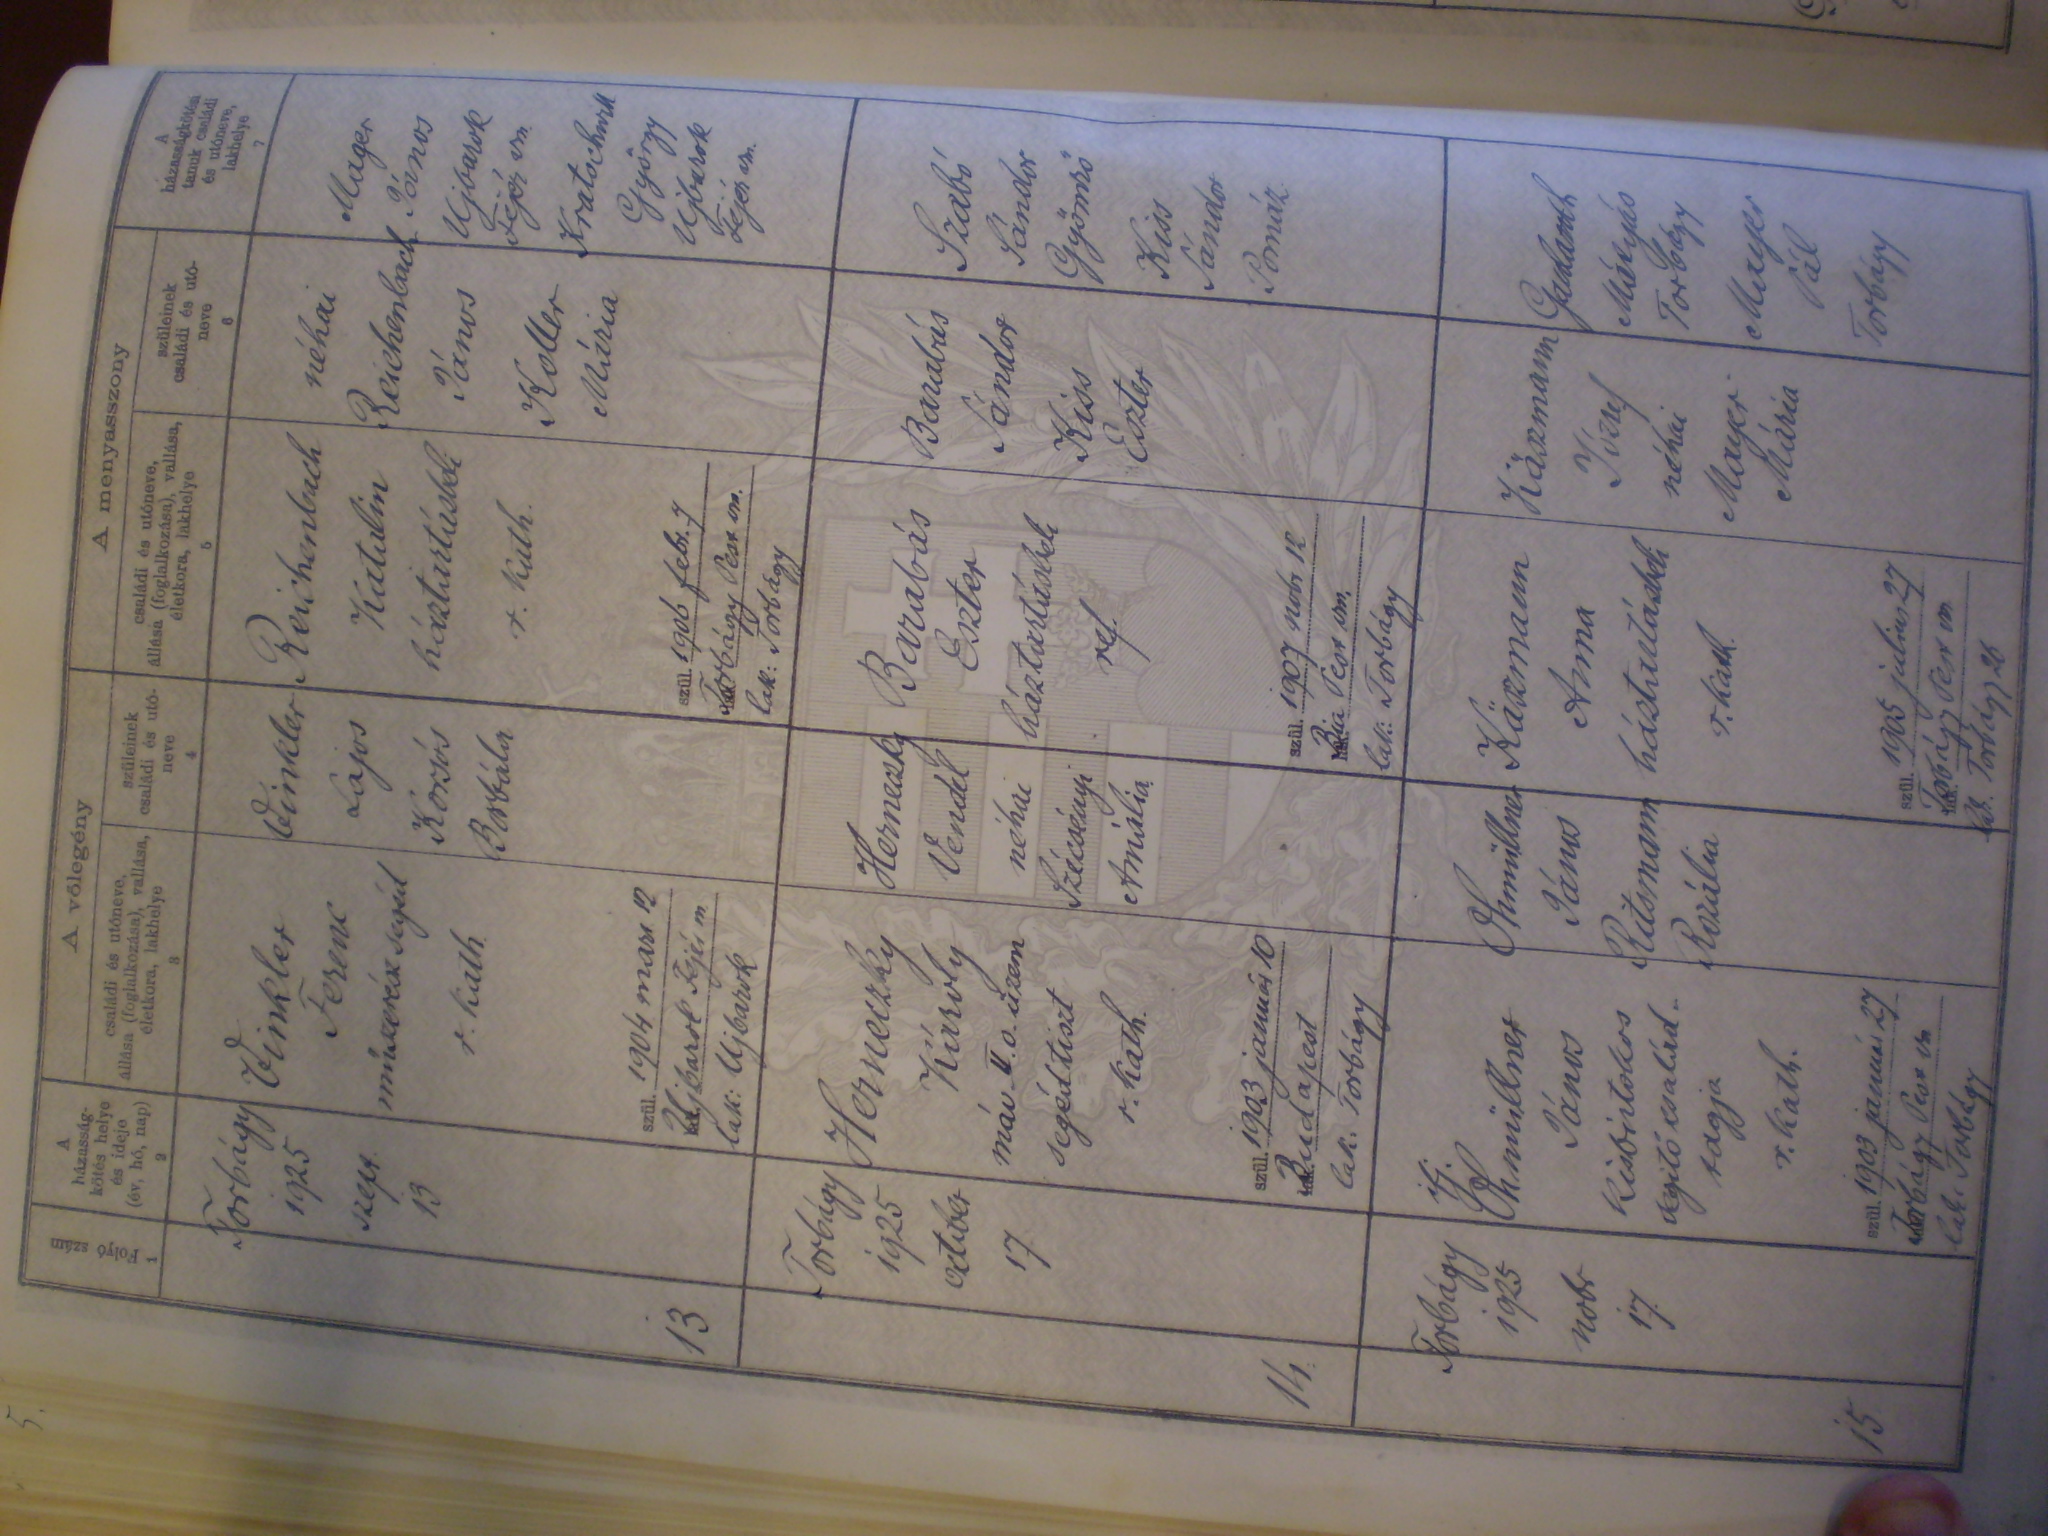 5.
A vőlegény
A menyasszony
Folyó szám
1
A
házasság-
kötés helye
és ideje
(év, hó, nap)
2
családi és utóneve,
állása (foglalkozása), vallása,
életkora, lakhelye
3
szüleinek
családi és utó-
neve
4
családi és utóneve,
állása (foglalkozása), vallása,
életkora, lakhelye
5
szüleinek
családi és utó-
neve
6
A
házasságkötési
tanuk családi
és utóneve,
lakhelye
7
13
Torbágy
1925
szept.
13
Winkler
Ferenc
műszerész segéd
r. kath.
szül. 1904 márc 12
Ujbarok Fejér m
lak: Ujbarok
Winkler
Lajos
Korsós
Borbála
Reichenbach
Katalin
háztartásbeli
r. kath.
szül. 1906 febr. 7
Torbágy Pest vm.
lak: Torbágy
néhai
Reichenbach
János
Koller
Mária
Mager
János
Ujbarok
Fejér vm.
György
Ujbarok
Fejér vm.
14.
Torbágy
1925
october
17
Herneczky
Károly
máv II. o. üzem
segédtiszt
r. kath.
szül. 1903 január 10
Budapest
lak: Torbágy
Herneczky
Vendel
néhai
Szécsényi
Amália
Barabás
Eszter
háztartásbeli
ref.
szül. 1907 nobr 12
Bia Pest vm.
lak: Torbágy
Barabás
Sándor
Kiss
Eszter
Szabó
Sándor
Gyömrő
Kiss
Sándor
Pomáz
15
Torbágy
1925
nobr
17.
ifj.
Ohmüllner
János
kisbirtokos
segítő család-
tagja
r. kath.
szül. 1903 január 27
Torbágy Pest vm
lak. Torbágy
Ohmüllner
János
Ritsmann
Rozália
Käszmann
Anna
háztartásbeli
r. kath.
szül. 1905 julius 27
Torbágy Pest vm
lak. Torbágy 26
Käszmann
József
néhai
Mayer
Mária
Mátyás
Torbágy
Mayer
Pál
Torbágy